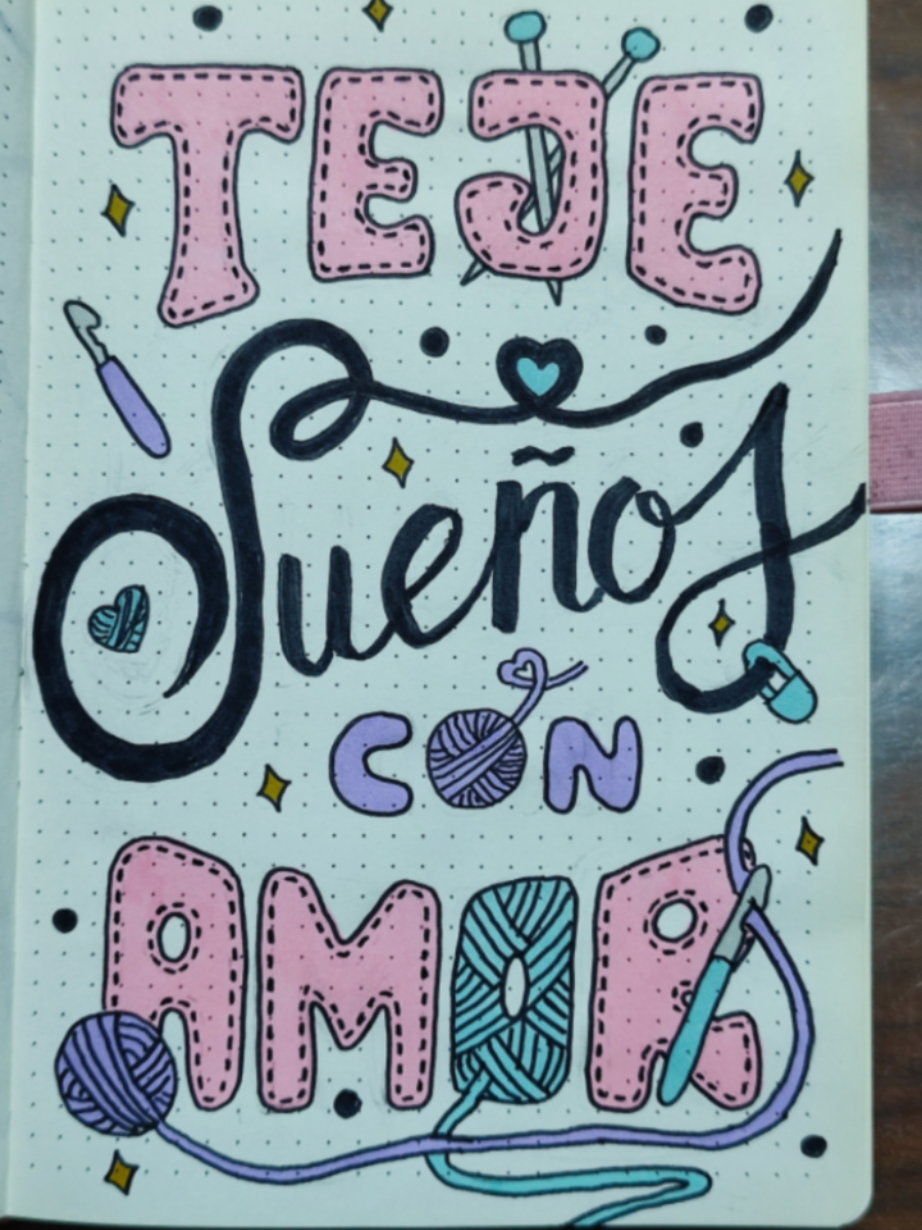 TEJE
Sueños
CON
AMOR